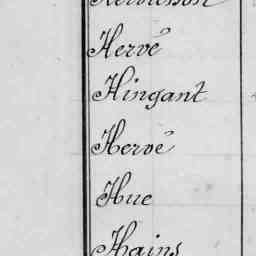 Hervé
Hingant
Hervé
Hue
Hains